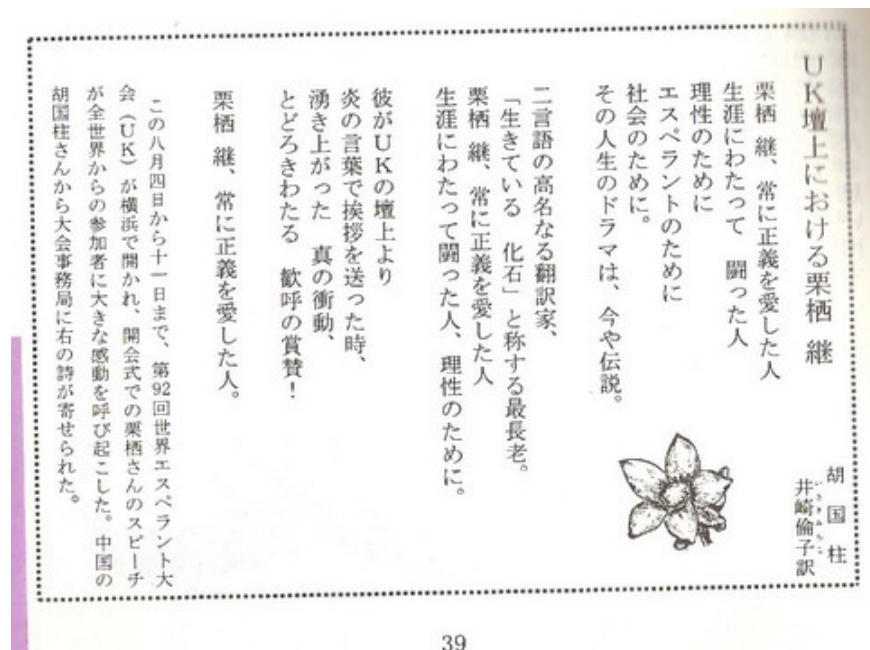 UK壇上における栗栖 継
胡国柱
いさきみちこ
井崎倫子訳
栗栖 継、常に正義を愛した人
生涯にわたって 闘った人
理性のために
エスペラントのために
社会のために。
その人生のドラマは、今や伝説。
二言語の高名なる翻訳家、
「生きている 化石」と称する最長老。
栗栖 継、常に正義を愛した人
生涯にわたって闘った人、理性のために。
彼がUKの壇上より
炎の言葉で挨拶を送った時、
湧き上がった 真の衝動、
とどろきわたる 歓呼の賞賛!
栗栖 継、常に正義を愛した人。
この八月四日から十一日まで、第92回世界エスペラント大
会(UK)が横浜で開かれ、開会式での栗栖さんのスピーチ
が全世界からの参加者に大きな感動を呼び起こした。中国の
胡国柱さんから大会事務局に右の詩が寄せられた。
39